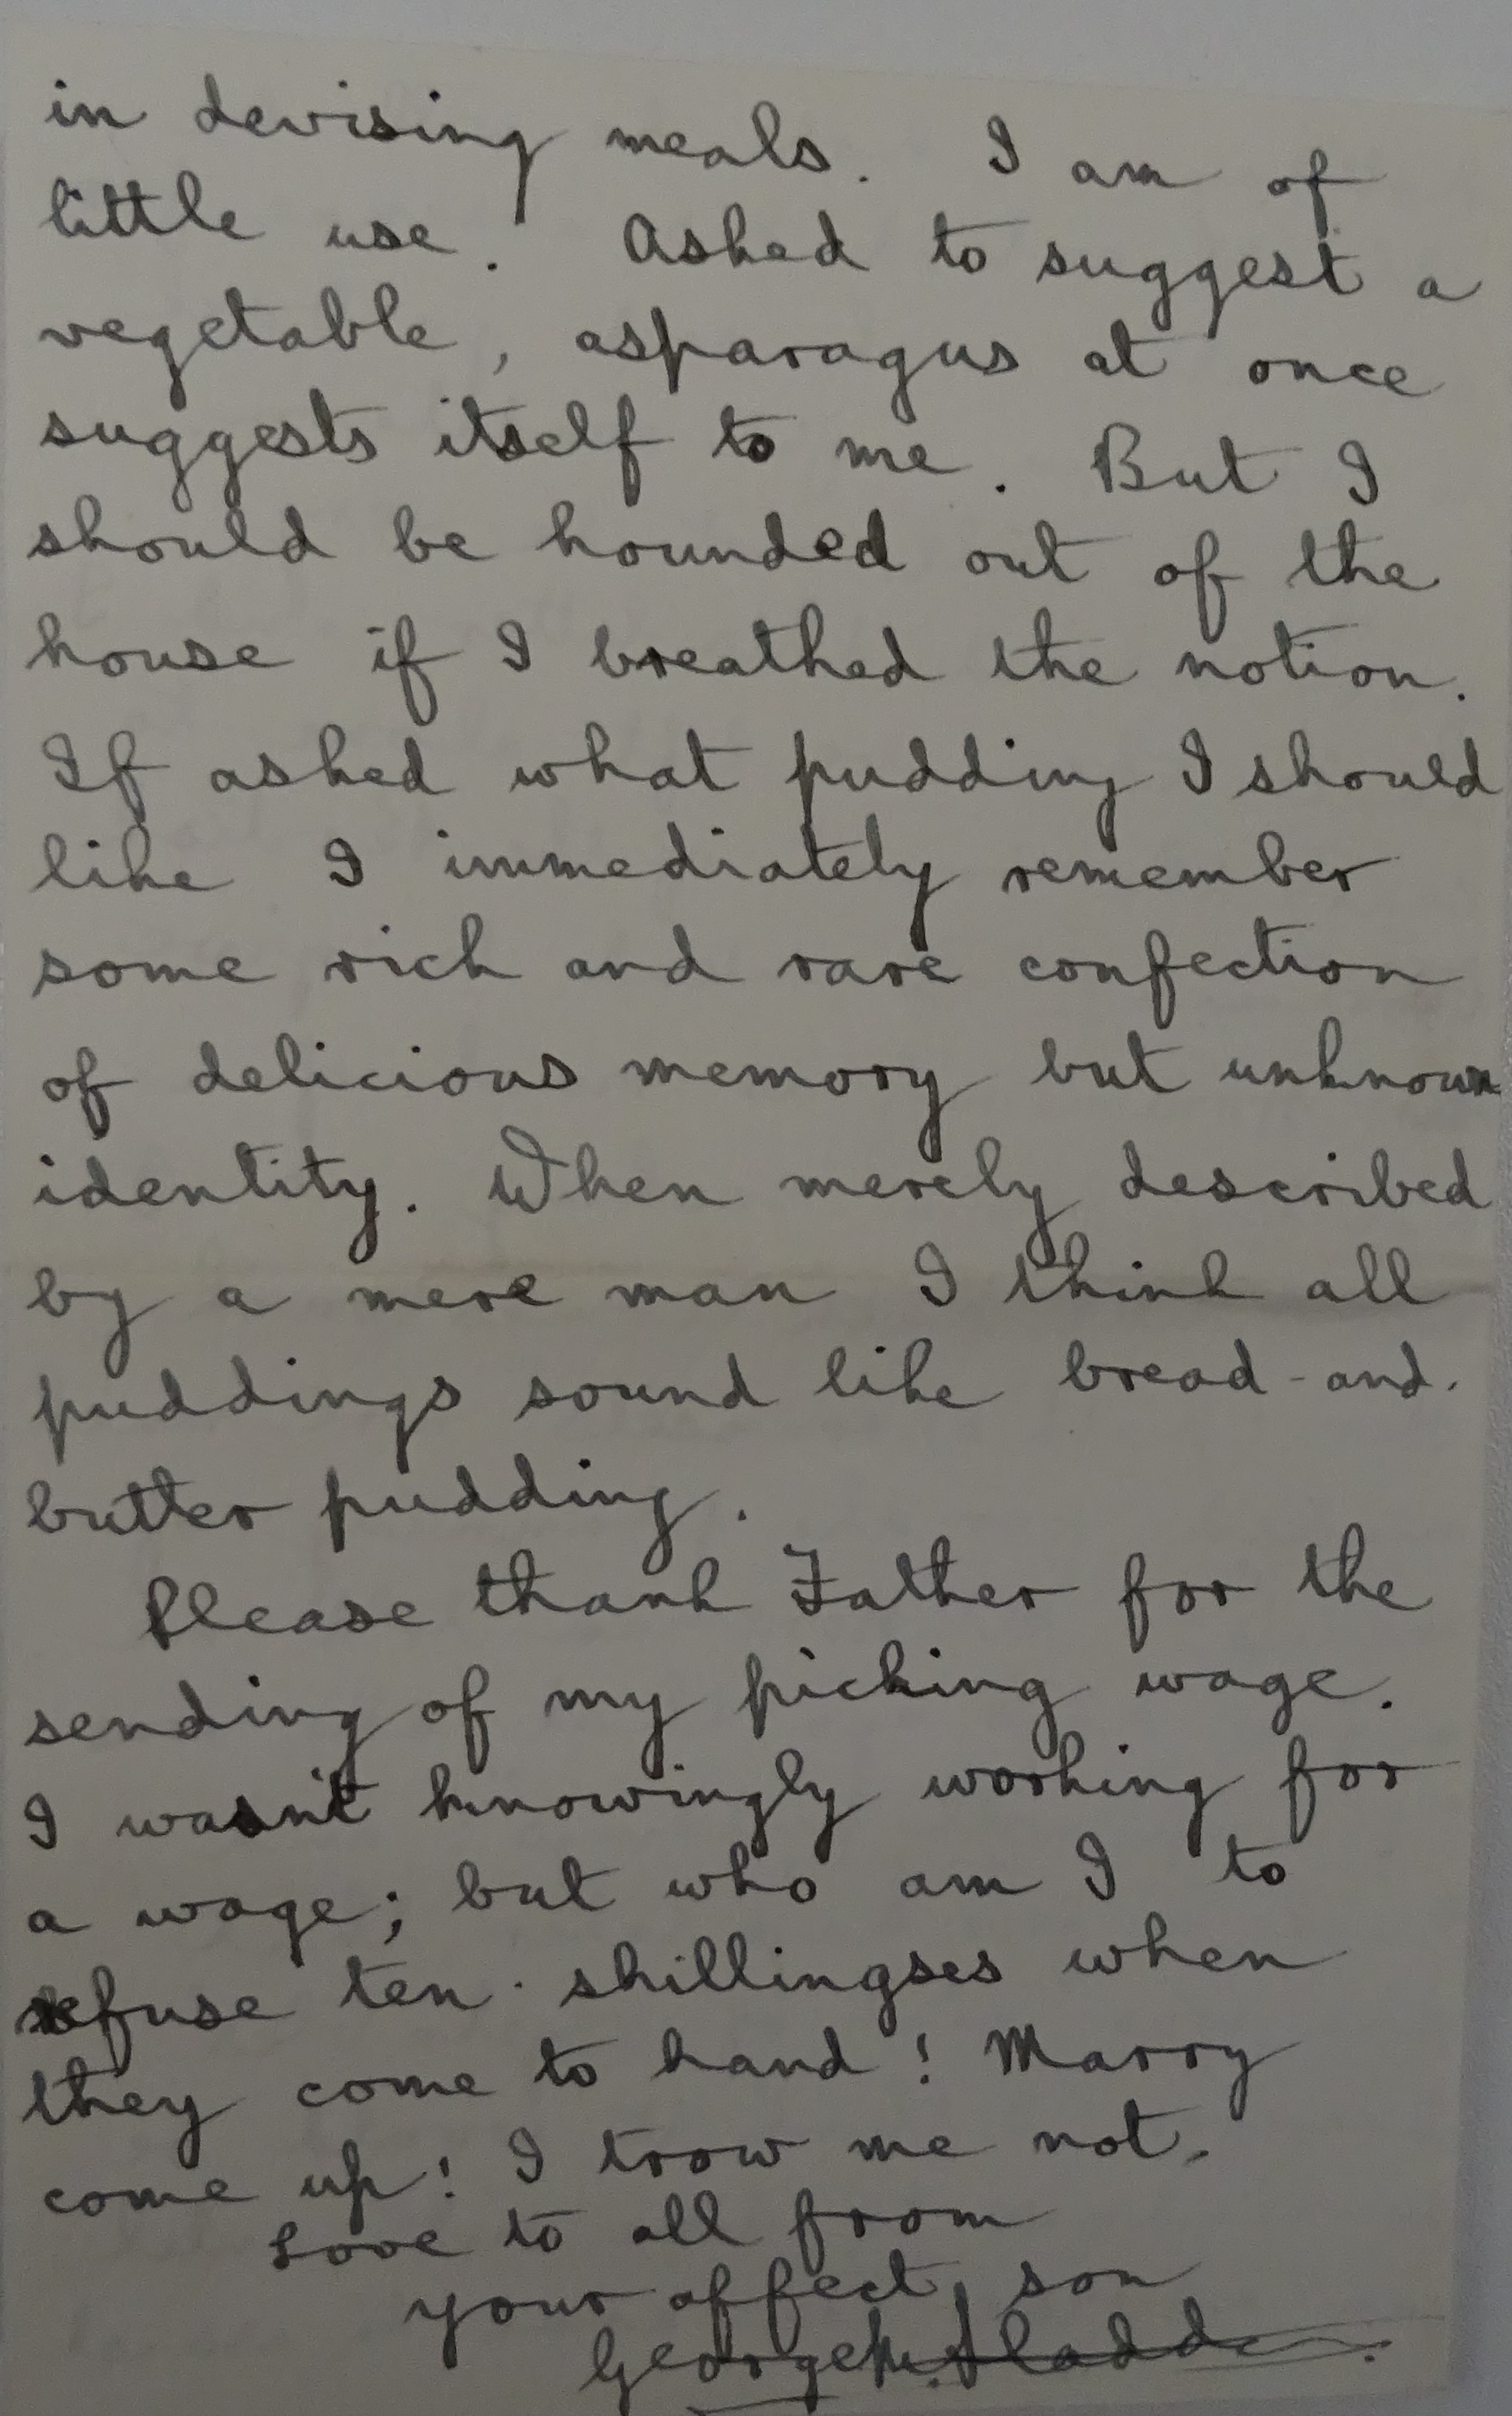 in devising meals. I am of
little use. Asked to suggest a
vegetable, asparagus at once
suggests itself to me. But I
should be hounded out of the
house if I breathed the notion.
If asked what pudding I should
like I immediately remember
some rich and rare confection
of delicious memory but unknown
identity. When merely described
by a mere man I think all
puddings sound like bread-and-
butter pudding.
Please thank Father for the
sending of my picking wage.
I wasn't knowingly working for
a wage; but who am I to
refuse ten-shillingses when
they come to hand! Marry
come up! I trow me not.
Love to all from
your affect. son
George